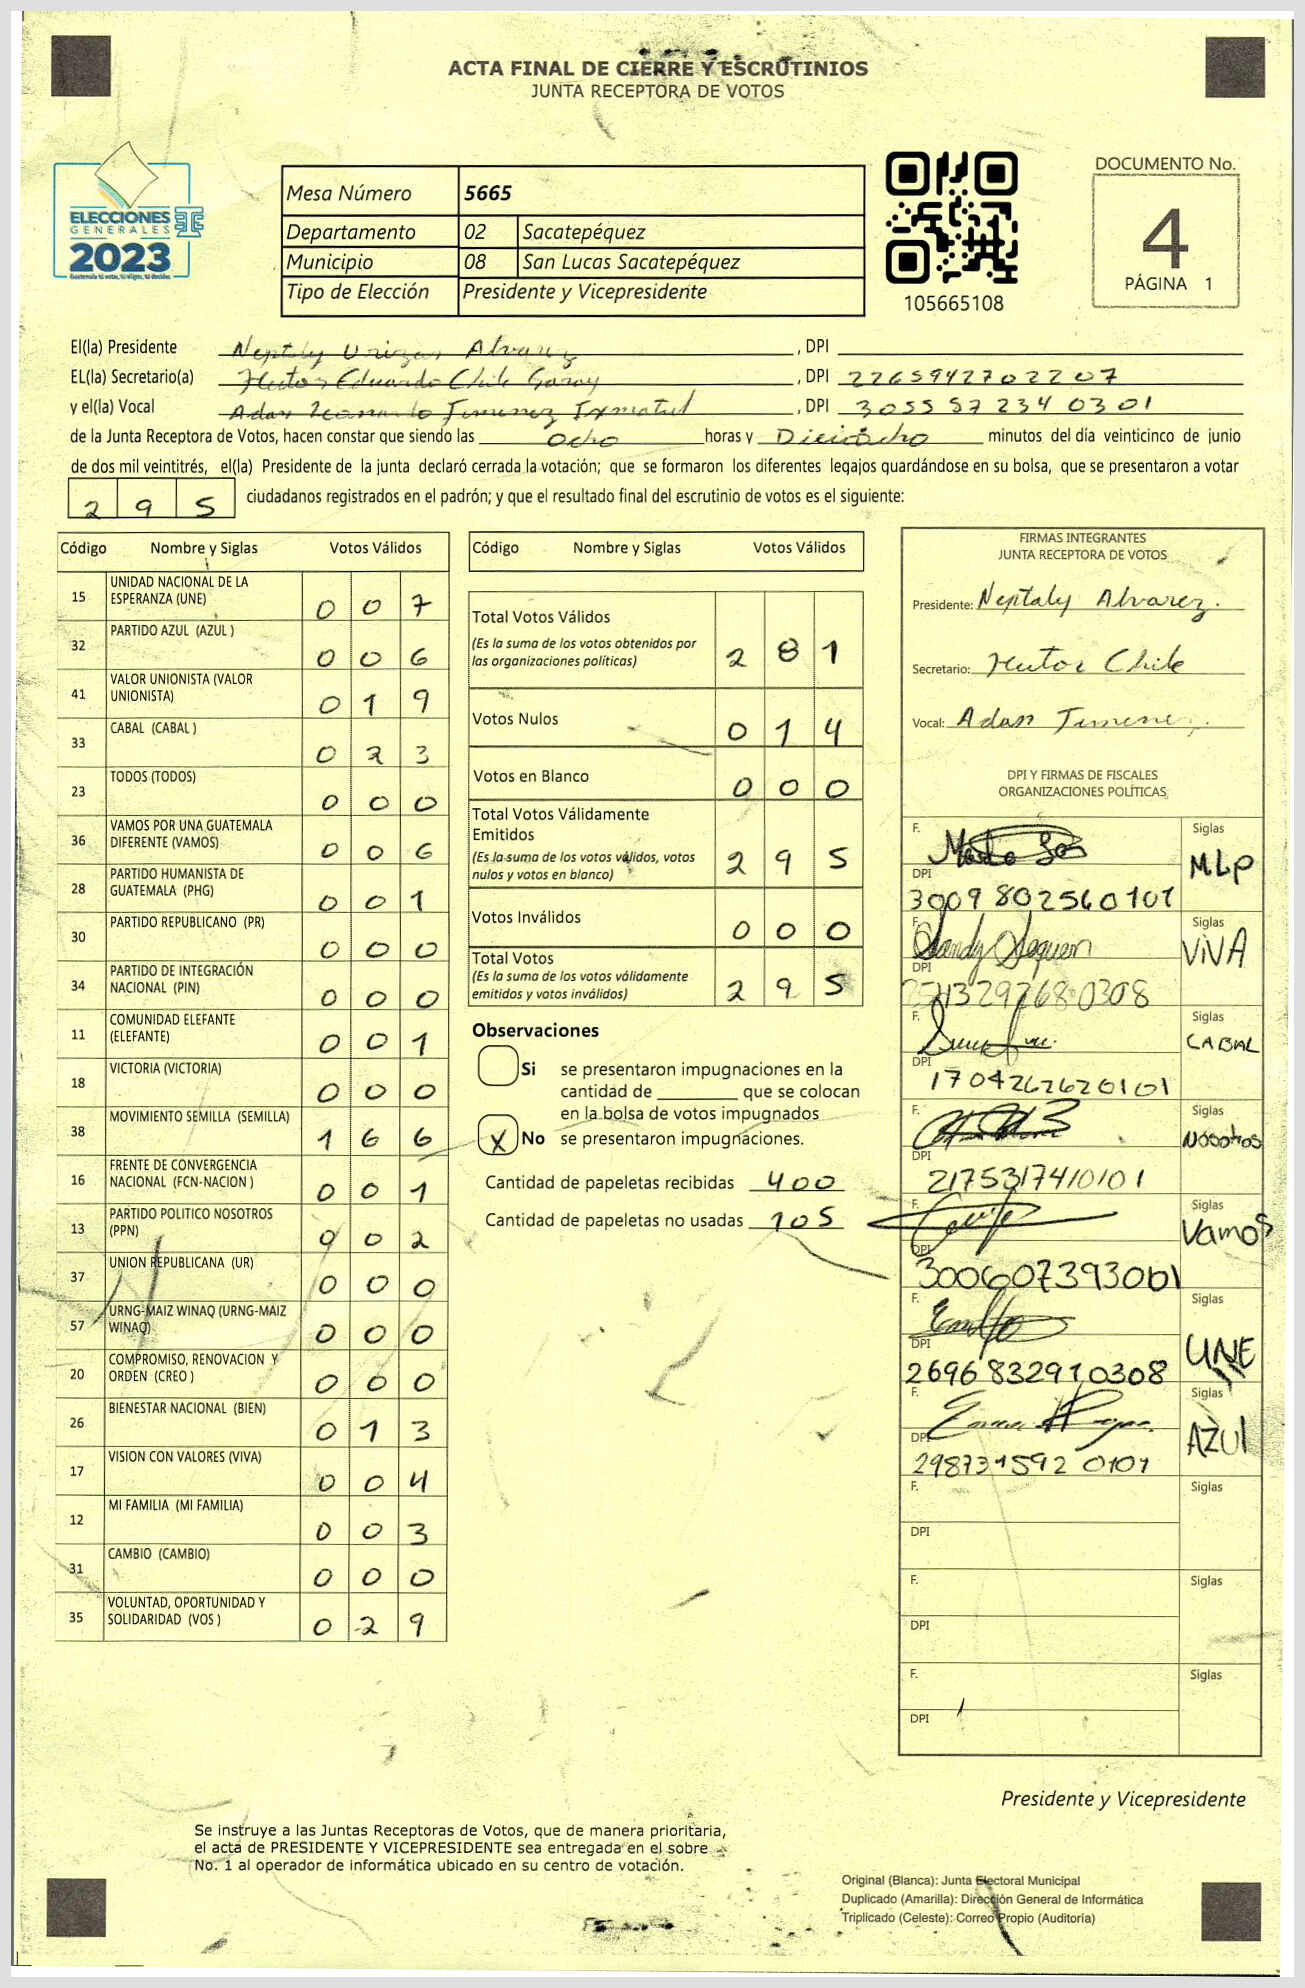 ACTA FINAL DE CIERRE Y ESCRUTINIOS
JUNTA RECEPTORA DE VOTOS
ELECCIONES
GENERALES
2023
Mesa Número 5665
Departamento 02 Sacatepéquez
Municipio 08 San Lucas Sacatepéquez
Tipo de Elección Presidente y Vicepresidente
105665108
DOCUMENTO No.
4
PÁGINA 1
El(la) Presidente Neptaly Urizar Alvarez , DPI
EL(la) Secretario(a) Hector Eduardo Chile Garay , DPI 2265942702207
y el(la) Vocal Adan Leonardo Jimenez , DPI 3055872340301
de la Junta Receptora de Votos, hacen constar que siendo las ocho horas y Dieciocho minutos del día veinticinco de junio
de dos mil veintitrés, el(la) Presidente de la junta declaró cerrada la votación; que se formaron los diferentes legajos quardándose en su bolsa, que se presentaron a votar
295 ciudadanos registrados en el padrón; y que el resultado final del escrutinio de votos es el siguiente:
Código Nombre y Siglas Votos Válidos
15 UNIDAD NACIONAL DE LA ESPERANZA (UNE) 0 0 7
32 PARTIDO AZUL (AZUL ) 0 0 6
41 VALOR UNIONISTA (VALOR UNIONISTA) 0 1 9
33 CABAL (CABAL ) 0 2 3
23 TODOS (TODOS) 0 0 0
36 VAMOS POR UNA GUATEMALA DIFERENTE (VAMOS) 0 0 6
28 PARTIDO HUMANISTA DE GUATEMALA (PHG) 0 0 1
30 PARTIDO REPUBLICANO (PR) 0 0 0
34 PARTIDO DE INTEGRACIÓN NACIONAL (PIN) 0 0 0
11 COMUNIDAD ELEFANTE (ELEFANTE) 0 0 1
18 VICTORIA (VICTORIA) 0 0 0
38 MOVIMIENTO SEMILLA (SEMILLA) 1 6 6
16 FRENTE DE CONVERGENCIA NACIONAL (FCN-NACION ) 0 0 1
13 PARTIDO POLITICO NOSOTROS (PPN) 0 0 2
37 UNION REPUBLICANA (UR) 0 0 0
57 URNG-MAIZ WINAQ (URNG-MAIZ WINAQ) 0 0 0
20 COMPROMISO, RENOVACION Y ORDEN (CREO ) 0 0 0
26 BIENESTAR NACIONAL (BIEN) 0 1 3
17 VISION CON VALORES (VIVA) 0 0 4
12 MI FAMILIA (MI FAMILIA) 0 0 3
31 CAMBIO (CAMBIO) 0 0 0
35 VOLUNTAD, OPORTUNIDAD Y SOLIDARIDAD (VOS ) 0 2 9
Código Nombre y Siglas Votos Válidos
Total Votos Válidos
(Es la suma de los votos obtenidos por
las organizaciones políticas) 2 8 1
Votos Nulos 0 1 4
Votos en Blanco 0 0 0
Total Votos Válidamente
Emitidos
(Es la suma de los votos válidos, votos
nulos y votos en blanco) 2 9 5
Votos Inválidos 0 0 0
Total Votos
(Es la suma de los votos válidamente
emitidos y votos inválidos) 2 9 5
Observaciones
Si se presentaron impugnaciones en la
cantidad de ________ que se colocan
en la bolsa de votos impugnados
X No se presentaron impugnaciones.
Cantidad de papeletas recibidas 400
Cantidad de papeletas no usadas 105
FIRMAS INTEGRANTES
JUNTA RECEPTORA DE VOTOS
Presidente: Neptaly Alvarez.
Secretario: Hector Chile
Vocal: Adan Jimenez.
DPI Y FIRMAS DE FISCALES
ORGANIZACIONES POLÍTICAS
F. Siglas
MLP
DPI
3009 802560101
F. Sandy Siglas
VIVA
DPI
F. Siglas
CABAL
DPI
1704262620101
F. Siglas
Nosotros
DPI
2175317410101
F. Siglas
Vamos
DPI
F. Siglas
UNE
DPI
2696832910308
F. Siglas
AZUl
DPI
2987315920101
F. Siglas
DPI
F. Siglas
DPI
F. Siglas
DPI
Presidente y Vicepresidente
Se instruye a las Juntas Receptoras de Votos, que de manera prioritaria,
el acta de PRESIDENTE Y VICEPRESIDENTE sea entregada en el sobre
No. 1 al operador de informática ubicado en su centro de votación.
Original (Blanca): Junta Electoral Municipal
Duplicado (Amarilla): Dirección General de Informática
Triplicado (Celeste): Correo Propio (Auditoría)